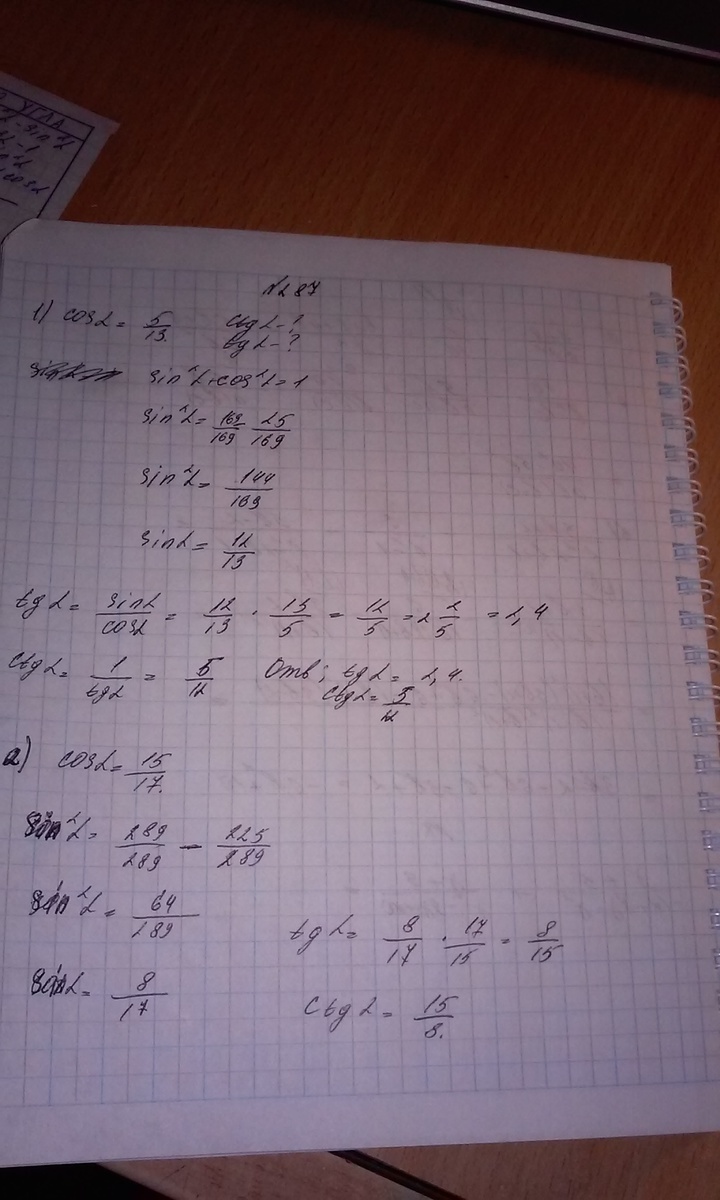 УГЛА
cosα
№287
1) cosα = 5/13. ctgα - ?
tgα - ?
sin²α + cos²α = 1
sin²α = 169/169 25/169
sin²α = 144/169
sinα = 12/13
tgα = sinα/cosα = 12/13 · 13/5 = 12/5 = 2 2/5 = 2,4
ctgα = 1/tgα = 5/12 Отв; tgα = 2,4.
ctgα = 5/12
2) cosα = 15/17.
sin²α = 289/289 - 225/289
sin²α = 64/289
tgα = 8/17 · 17/15 = 8/15
sinα = 8/17
ctgα = 15/8.